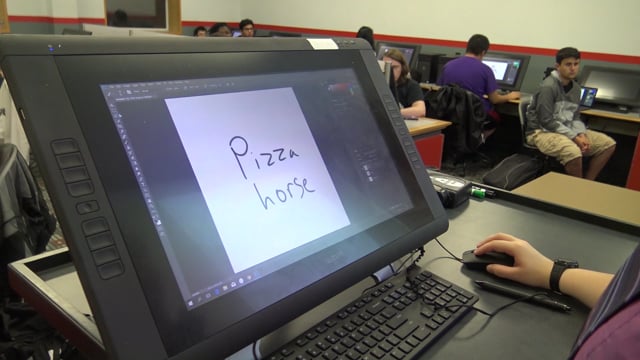 Pizza
horse